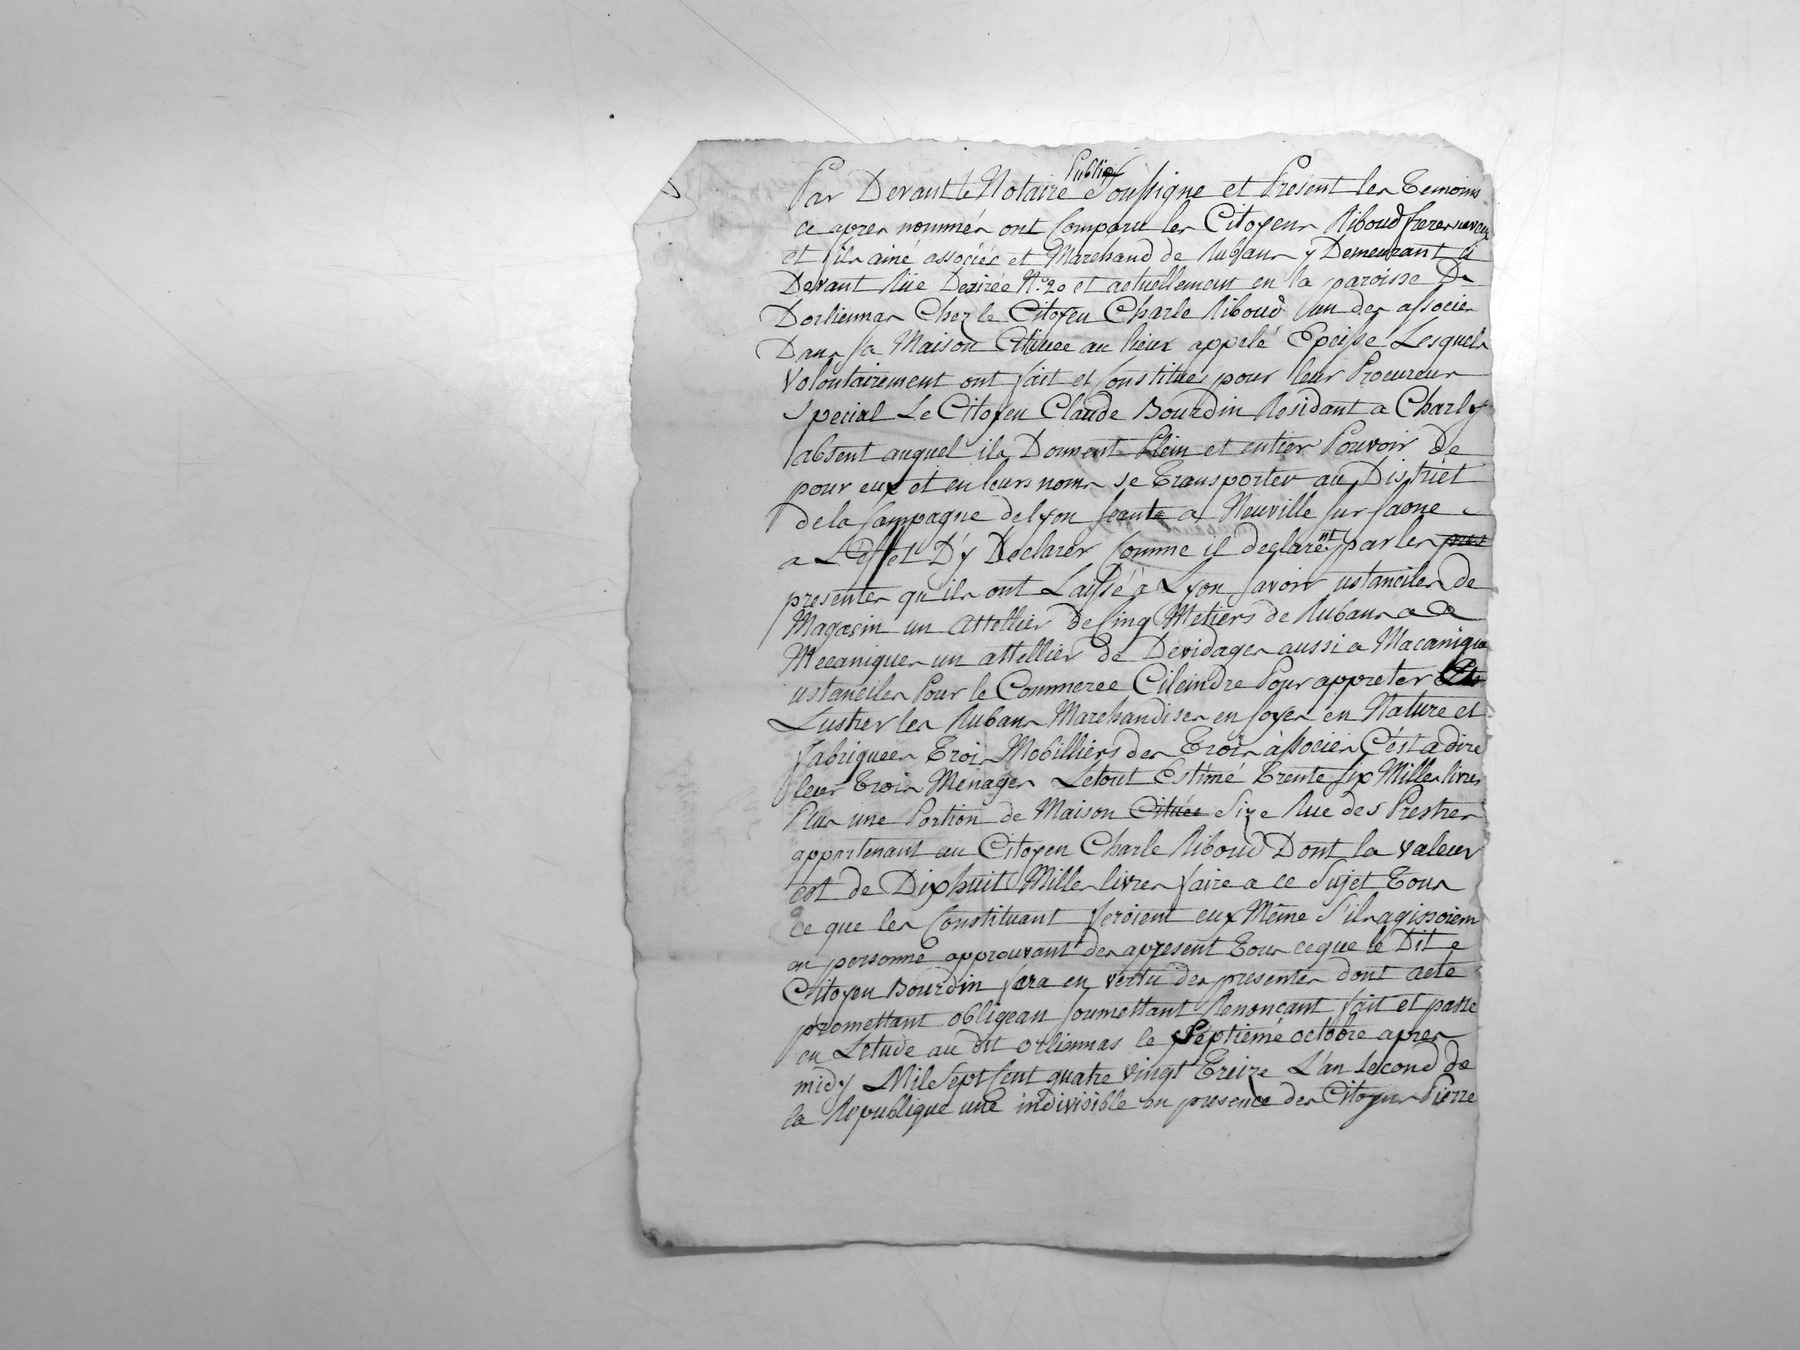 Par Devant le Notaire Public Soussigne et Présent les Temoins
ci apres nommés ont Comparu les Citoyens Riboud freres neveu
et fils ainé associéé et Marchand de Rubans y Demeurant ci
Devant Rüe Desirée N.º 20 et actuellement en la paroisse De
Dorliennas Chez le Citoyen Charle Riboud l'un des associe
Dans sa Maison Cituee au lieux appelé Epeisse Lesquels
Volontairement ont fait et Constitues pour leur Procureur
Special Le Citoyen Claude Bourdin Residant a Charly
absent auquel ils Donnent Plein et entier Pouvoir De
pour eux et en leurs noms se Transporter au District
de la Campagne de lyon Seante a Neuville sur saone
a L'Effet D'y Déclarer Comme il declarent par les
presentes qu'ils ont Laissé a Lyon savoir ustanciles de
Magasin un Attellier de Cinq Métiers de Rubans a
Mecaniques un attellier de Dévidages aussi a Macanique
ustanciles Pour le Commerce Cileindre Pour appreter Et
Lustrer les Rubans Marchandises en soyes en Nature et
fabriquees Trois Mobilliers des Trois associes C'est a dire
leur Trois Menages Le tout Estimé Trente six Milles livres
Plus une Portion de Maison Cituée Size Rue des Prestres
appartenant au Citoyen Charle Riboud Dont la valeur
est de Dixhuit Milles livres faire a ce Sujet Tous
ce que les Constituant feroient eux Même S'ils agissoient
en personne approuvant des apresent Tous ce que le Dit
Citoyen Bourdin fera en vertu des presentes dont acte
promettant obligean soumettant Renonçant fait et passe
en L'etude au dit orliennas le Septiéme octobre apres
midy Mile Sept Cent quatre vingt Treize L'an second de
la Republique une indivisible en presence des Citoyens Pierre